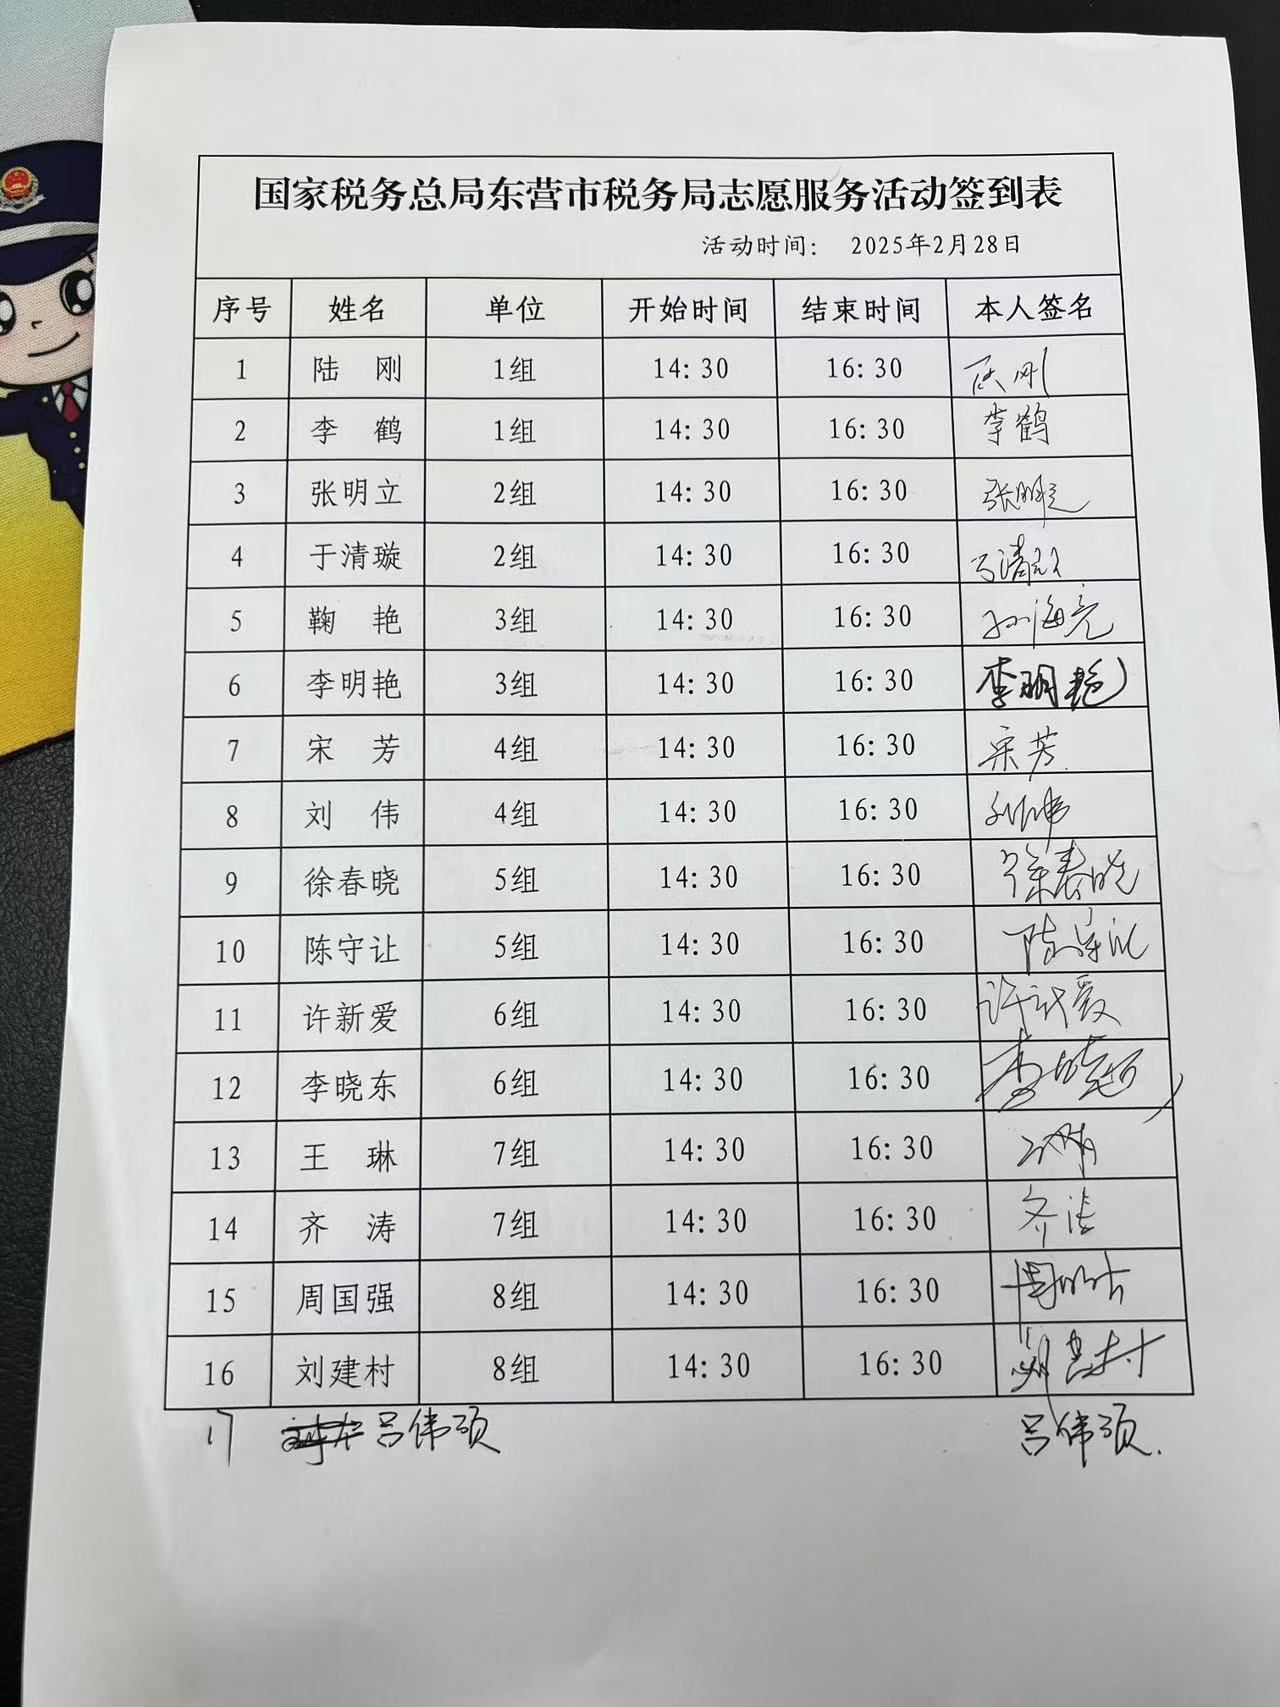 国家税务总局东营市税务局志愿服务活动签到表
活动时间： 2025年2月28日
序号 姓名 单位 开始时间 结束时间 本人签名
1 陆 刚 1组 14:30 16:30 陆刚
2 李 鹤 1组 14:30 16:30 李鹤
3 张明立 2组 14:30 16:30 张明立
4 于清璇 2组 14:30 16:30 于清
5 鞠 艳 3组 14:30 16:30 孙海亮
6 李明艳 3组 14:30 16:30 李明艳
7 宋 芳 4组 14:30 16:30 宋芳
8 刘 伟 4组 14:30 16:30 刘伟
9 徐春晓 5组 14:30 16:30 徐春晓
10 陈守让 5组 14:30 16:30 陈守让
11 许新爱 6组 14:30 16:30 许新爱
12 李晓东 6组 14:30 16:30 李晓
13 王 琳 7组 14:30 16:30
14 齐 涛 7组 14:30 16:30 齐涛
15 周国强 8组 14:30 16:30 周
16 刘建村 8组 14:30 16:30 刘建村
17 吕伟硕 吕伟硕